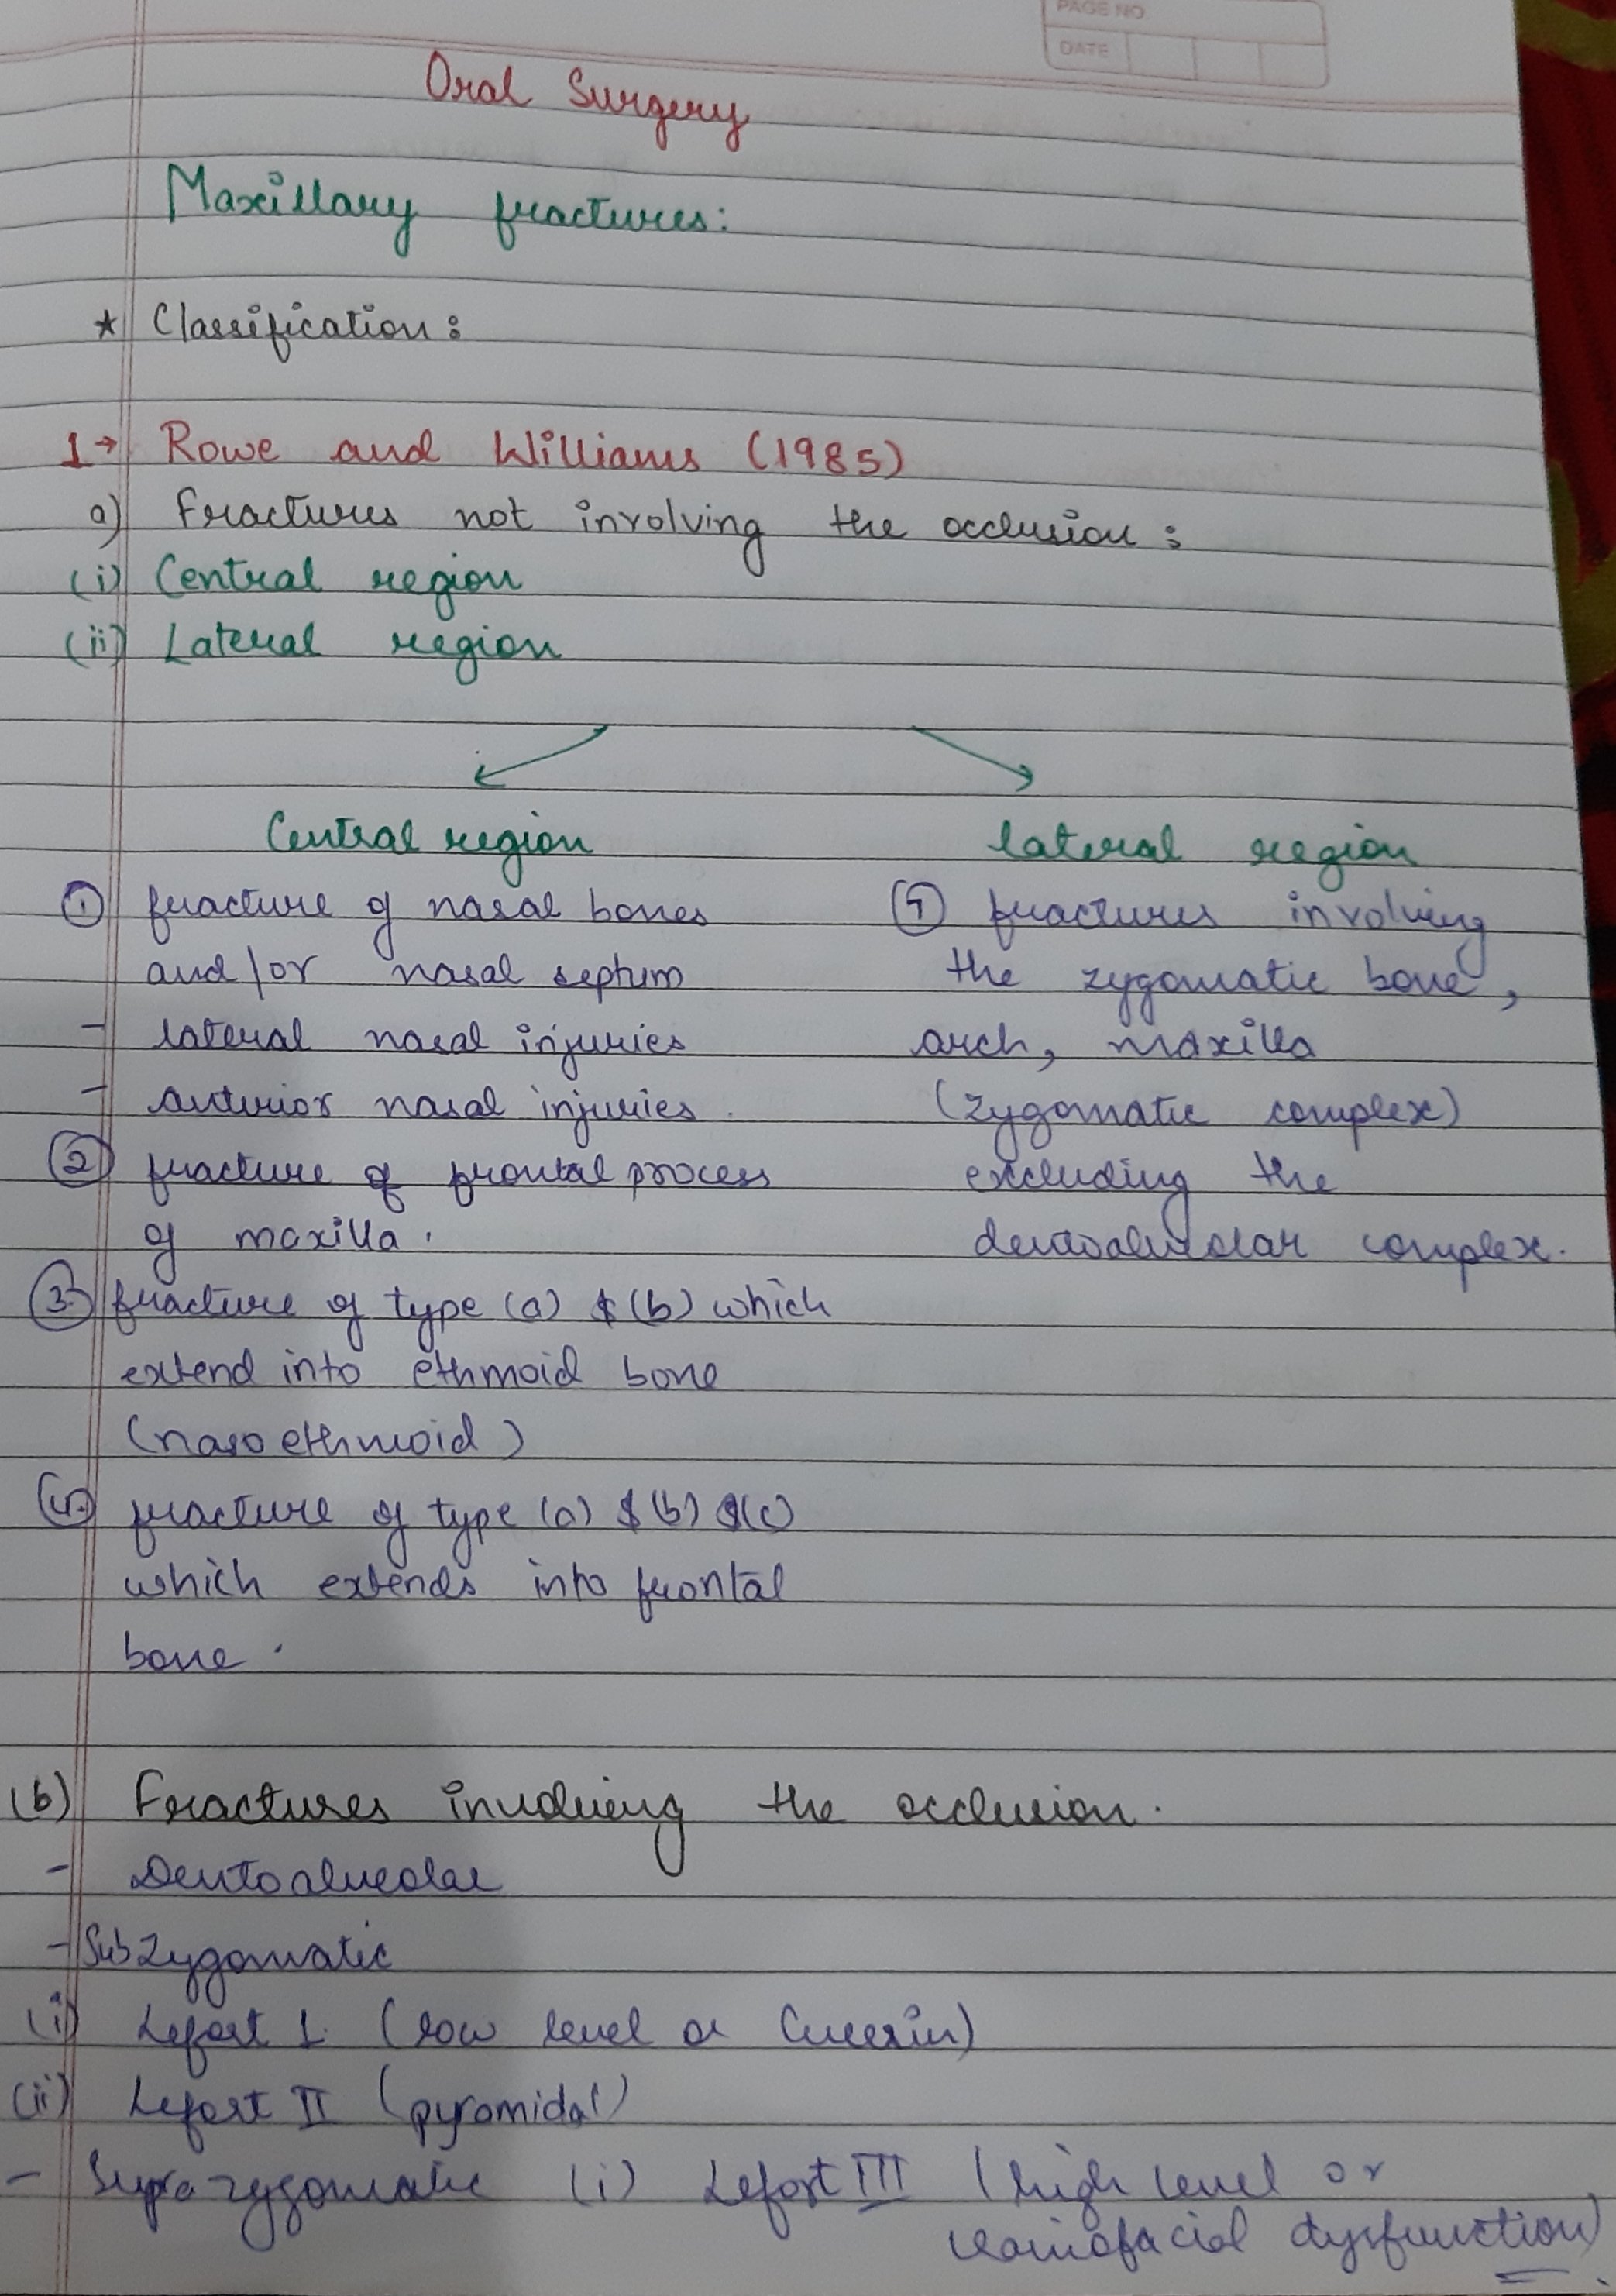 PAGE NO.
DATE
Oral Surgery
Maxillary fractures:
* Classification:
1→ Rowe and Williams (1985)
a) Fractures not involving the occlusion:
(i) Central region
(ii) Lateral region
Central region
① fracture of nasal bones
and/or nasal septum
- lateral nasal injuries
- anterior nasal injuries.
② fracture of frontal process
of maxilla.
③ fracture of type (a) & (b) which
extend into ethmoid bone
(nasoethmoid)
④ fracture of type (a) & (b) & (c)
which extends into frontal
bone.
lateral region
fractures involving
the zygomatic bone,
arch, maxilla
(zygomatic complex)
excluding the
dentoalveolar complex.
(b) Fractures involving the occlusion.
- Dentoalveolar
- Subzygomatic
(i) Lefort 1 (low level or Guerin)
(ii) Lefort II (pyramidal)
- Suprazygomatic (i) Lefort III (high level or
craniofacial dysfunction)